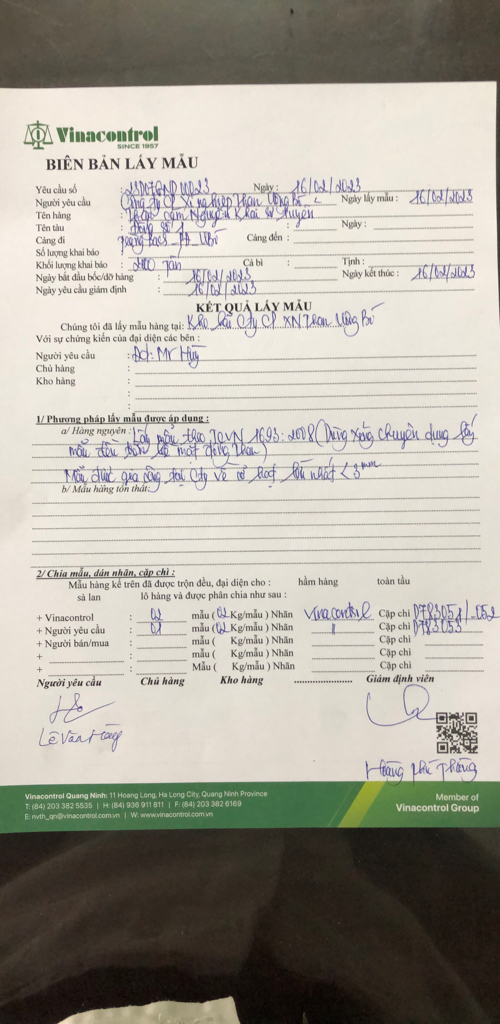 Vinacontrol
SINCE 1957
BIÊN BẢN LẤY MẪU
Yêu cầu số : Ngày : 16/02/2023
Người yêu cầu : Công ty CP Xí nghiệp Than Uông Bí Ngày lấy mẫu : 16/02/2023
Tên hàng : Than cám Nguyên Khai
Tên tàu : Ngày :
Cảng đi : Cảng đến :
Số lượng khai báo :
Khối lượng khai báo : Tấn Cả bì : Tịnh :
Ngày bắt đầu bốc/dỡ hàng : 16/02/2023 Ngày kết thúc : 16/02/2023
Ngày yêu cầu giám định : 16/02/2023
KẾT QUẢ LẤY MẪU
Chúng tôi đã lấy mẫu hàng tại: Kho bãi Cty CP XN Than Uông Bí
Với sự chứng kiến của đại diện các bên :
Người yêu cầu : Ad: Mr Huy
Chủ hàng :
Kho hàng :
1/ Phương pháp lấy mẫu được áp dụng :
a/ Hàng nguyên : Lấy mẫu theo TCVN 1693: 2008 (Dùng xẻng chuyên dụng lấy
mẫu đều trên bề mặt đống than)
Mẫu được gia công tại Cty về cỡ hạt lớn nhất < 3mm
b/ Mẫu hàng tổn thất:
2/ Chia mẫu, dán nhãn, cặp chì :
Mẫu hàng kể trên đã được trộn đều, đại diện cho : hầm hàng toàn tầu
sà lan lô hàng và được phân chia như sau :
+ Vinacontrol : 02 mẫu ( 02 Kg/mẫu ) Nhãn Vinacontrol Cặp chì D783051/-052
+ Người yêu cầu : 01 mẫu ( 02 Kg/mẫu ) Nhãn // Cặp chì D783053
+ Người bán/mua : mẫu ( Kg/mẫu ) Nhãn Cặp chì
+ : mẫu ( Kg/mẫu ) Nhãn Cặp chì
+ : Mẫu ( Kg/mẫu ) Nhãn Cặp chì
Người yêu cầu Chủ hàng Kho hàng Giám định viên
Lê Văn Hồng
Hoàng Phi Thăng
Vinacontrol Quang Ninh: 11 Hoang Long, Ha Long City, Quang Ninh Province
T: (84) 203 382 5535 | H: (84) 936 911 811 | F: (84) 203 382 6169
E: nvth_qn@vinacontrol.com.vn | W: www.vinacontrol.com.vn
Member of
Vinacontrol Group